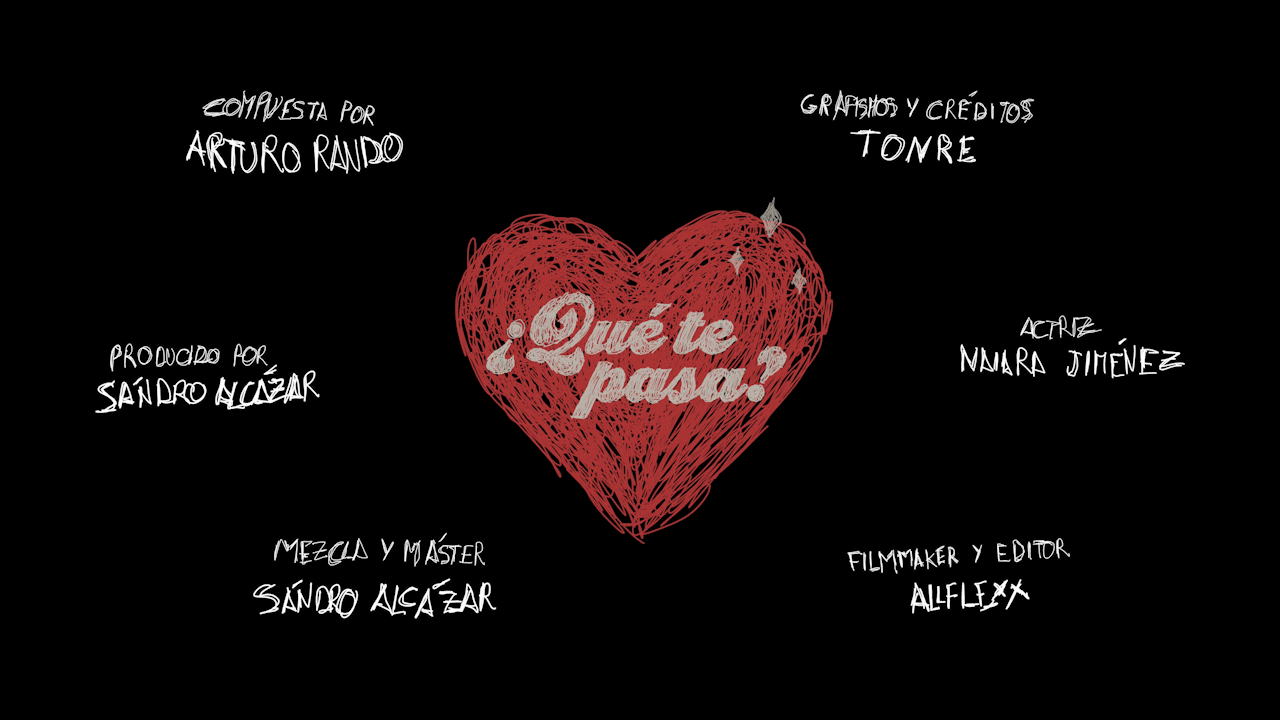 COMPUESTA POR
ARTURO RANDO
GRAFISMOS Y CRÉDITOS
TONRE
¿Qué te
pasa?
ACTRIZ
NAIARA JIMÉNEZ
PRODUCIDO POR
SÁNDRO ALCÁZAR
MEZCLA Y MÁSTER
SÁNDRO ALCÁZAR
FILMMAKER Y EDITOR
ALLFLEXX